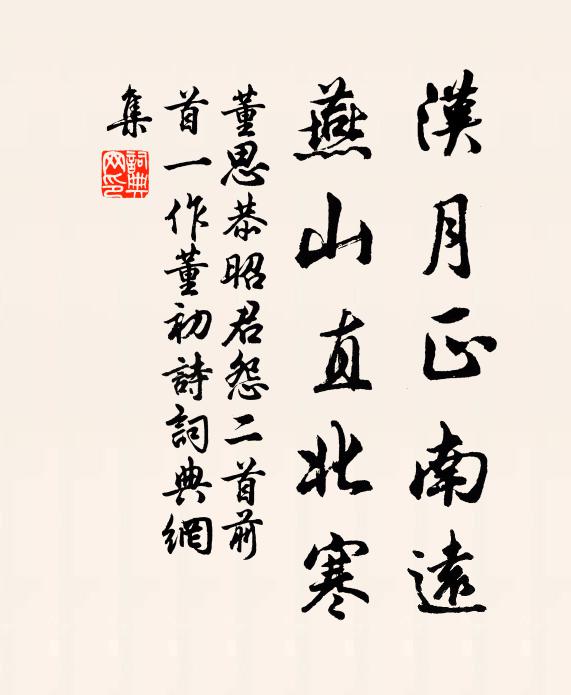 漢月正南遠
燕山直北寒
董思恭昭君怨二首前
首一作董初詩詞典網
集
詞典網印